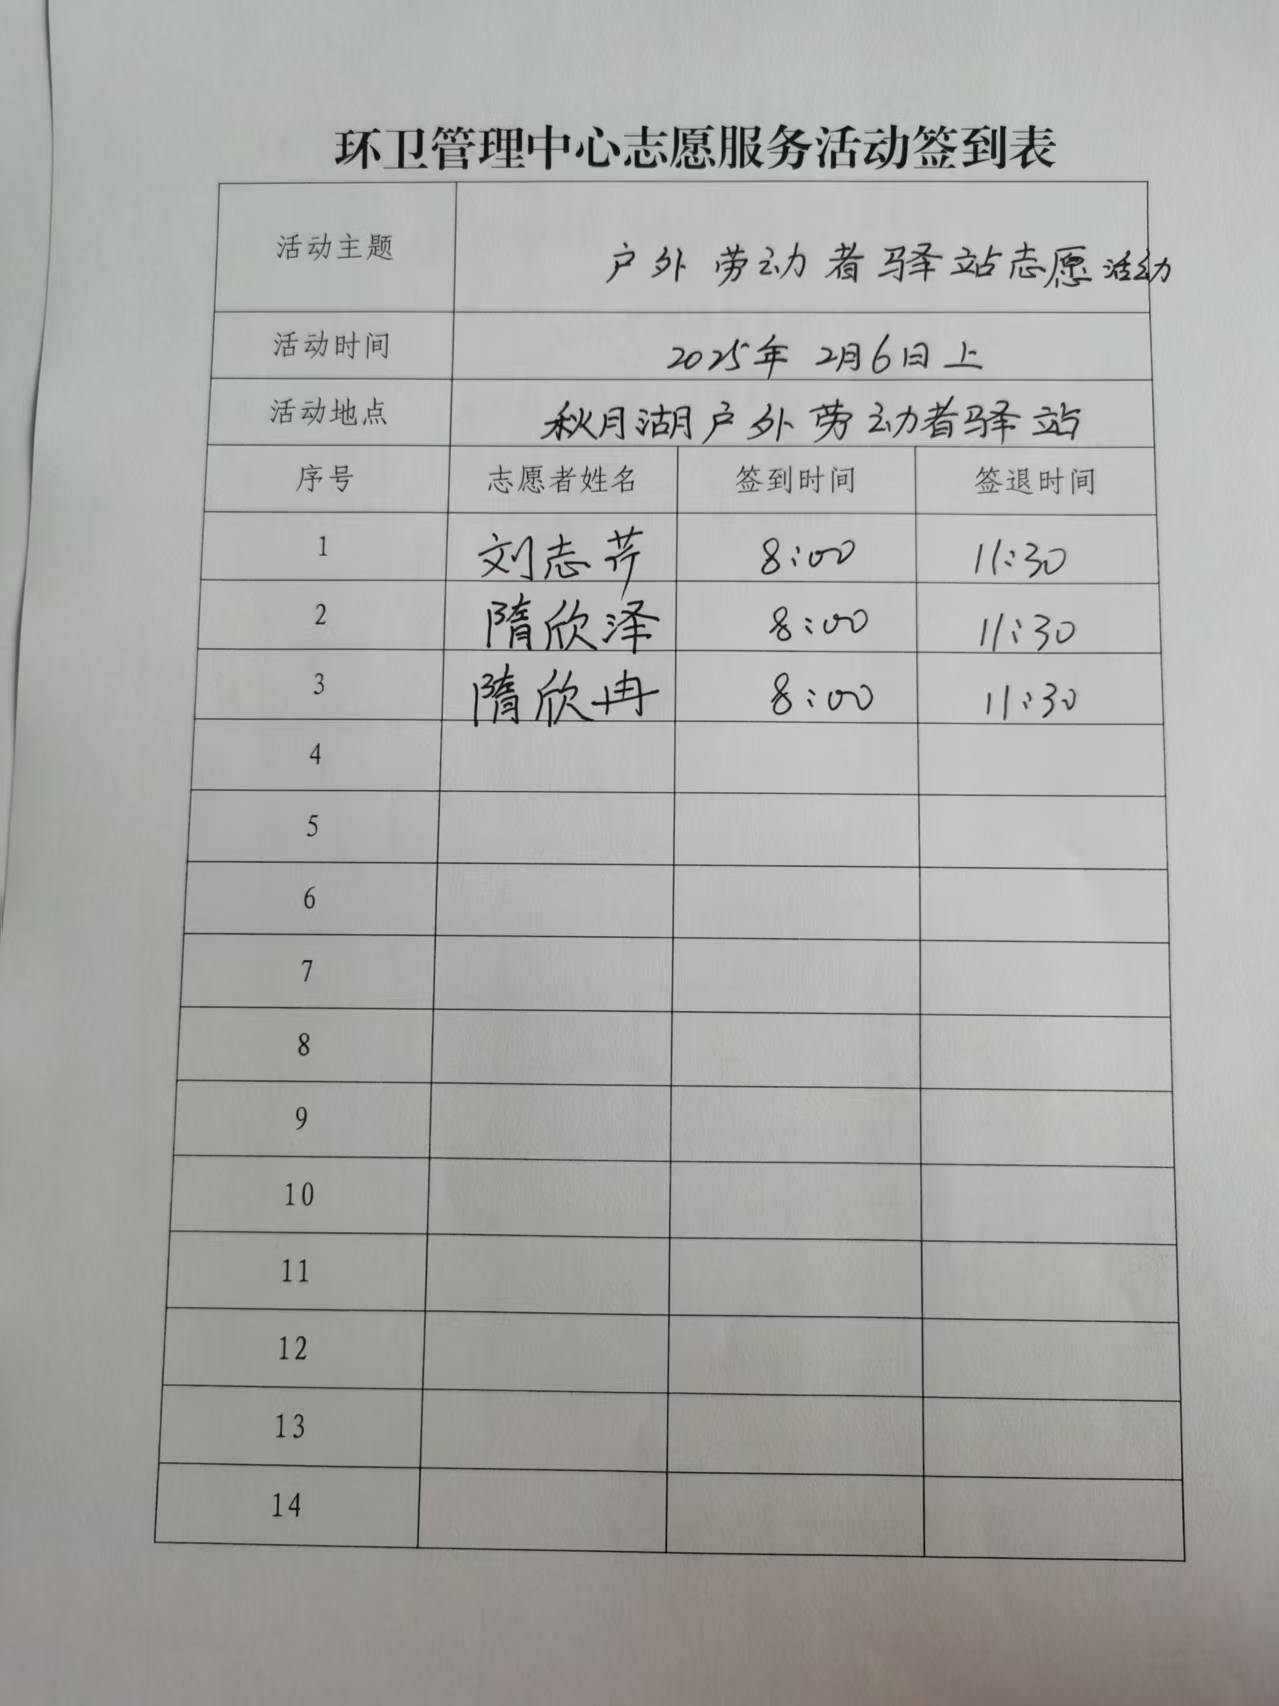 环卫管理中心志愿服务活动签到表
活动主题 户外劳动者驿站志愿活动
活动时间 2025年2月6日上
活动地点 秋月湖户外劳动者驿站
序号 志愿者姓名 签到时间 签退时间
1 刘志芹 8:00 11:30
2 隋欣泽 8:00 11:30
3 隋欣冉 8:00 11:30
4
5
6
7
8
9
10
11
12
13
14